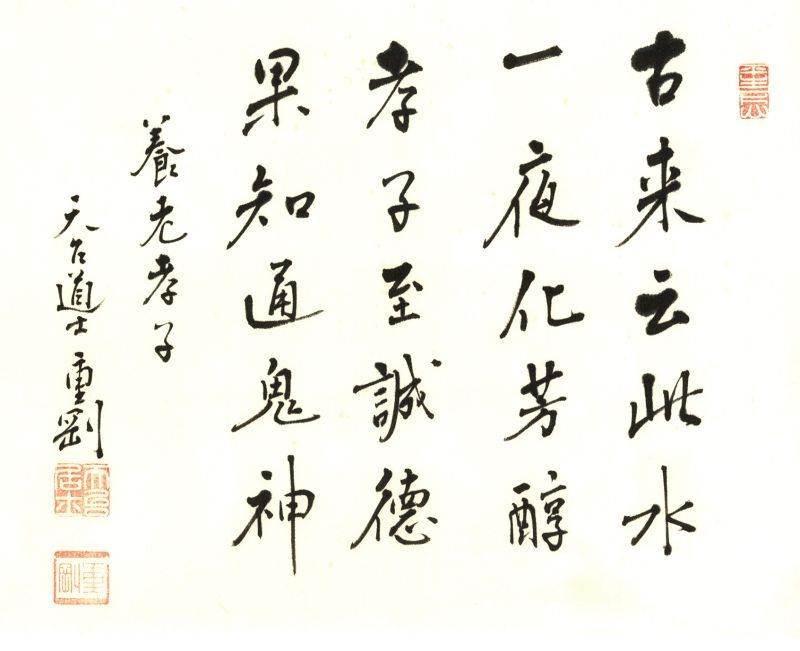 古来云此水
一夜化芳醇
孝子至誠德
果知通鬼神
養老孝子
天台道士重剛
重剛